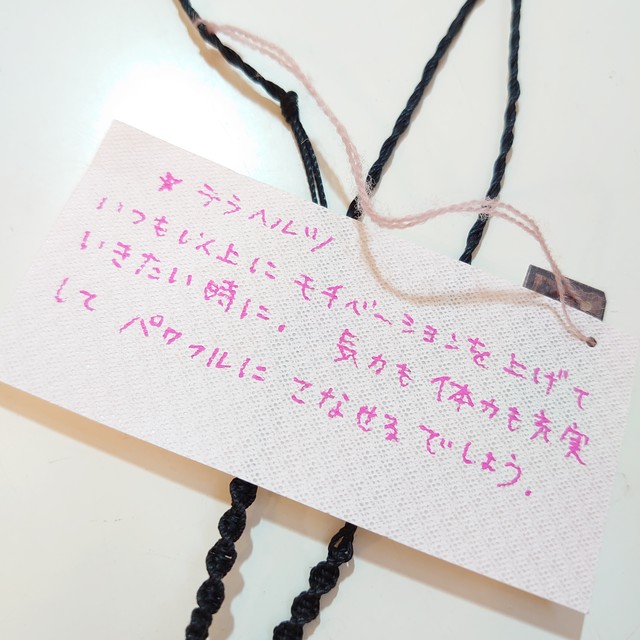 ★テラヘルツ
いつも以上にモチベーションを上げて
いきたい時に。気力も体力も充実
して パワフルに こなせるでしょう.